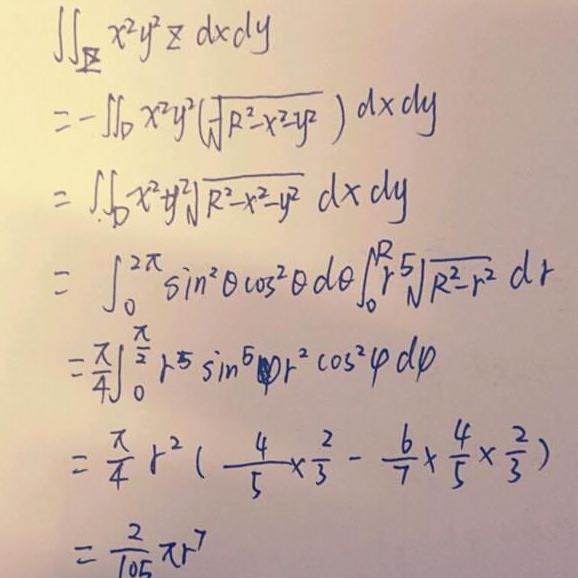 ∬_Σ x²y²z dxdy
= -∬_D x²y²(-√(R²-x²-y²)) dxdy
= ∬_D x²y²√(R²-x²-y²) dxdy
= ∫₀^{2π} sin²θcos²θdθ∫₀^R r⁵√(R²-r²) dr
= π/4 ∫₀^{π/2} r⁵ sin⁵φr² cos²φdφ
= π/4 r²( 4/5 × 2/3 - 6/7 × 4/5 × 2/3 )
= 2/105 πr⁷